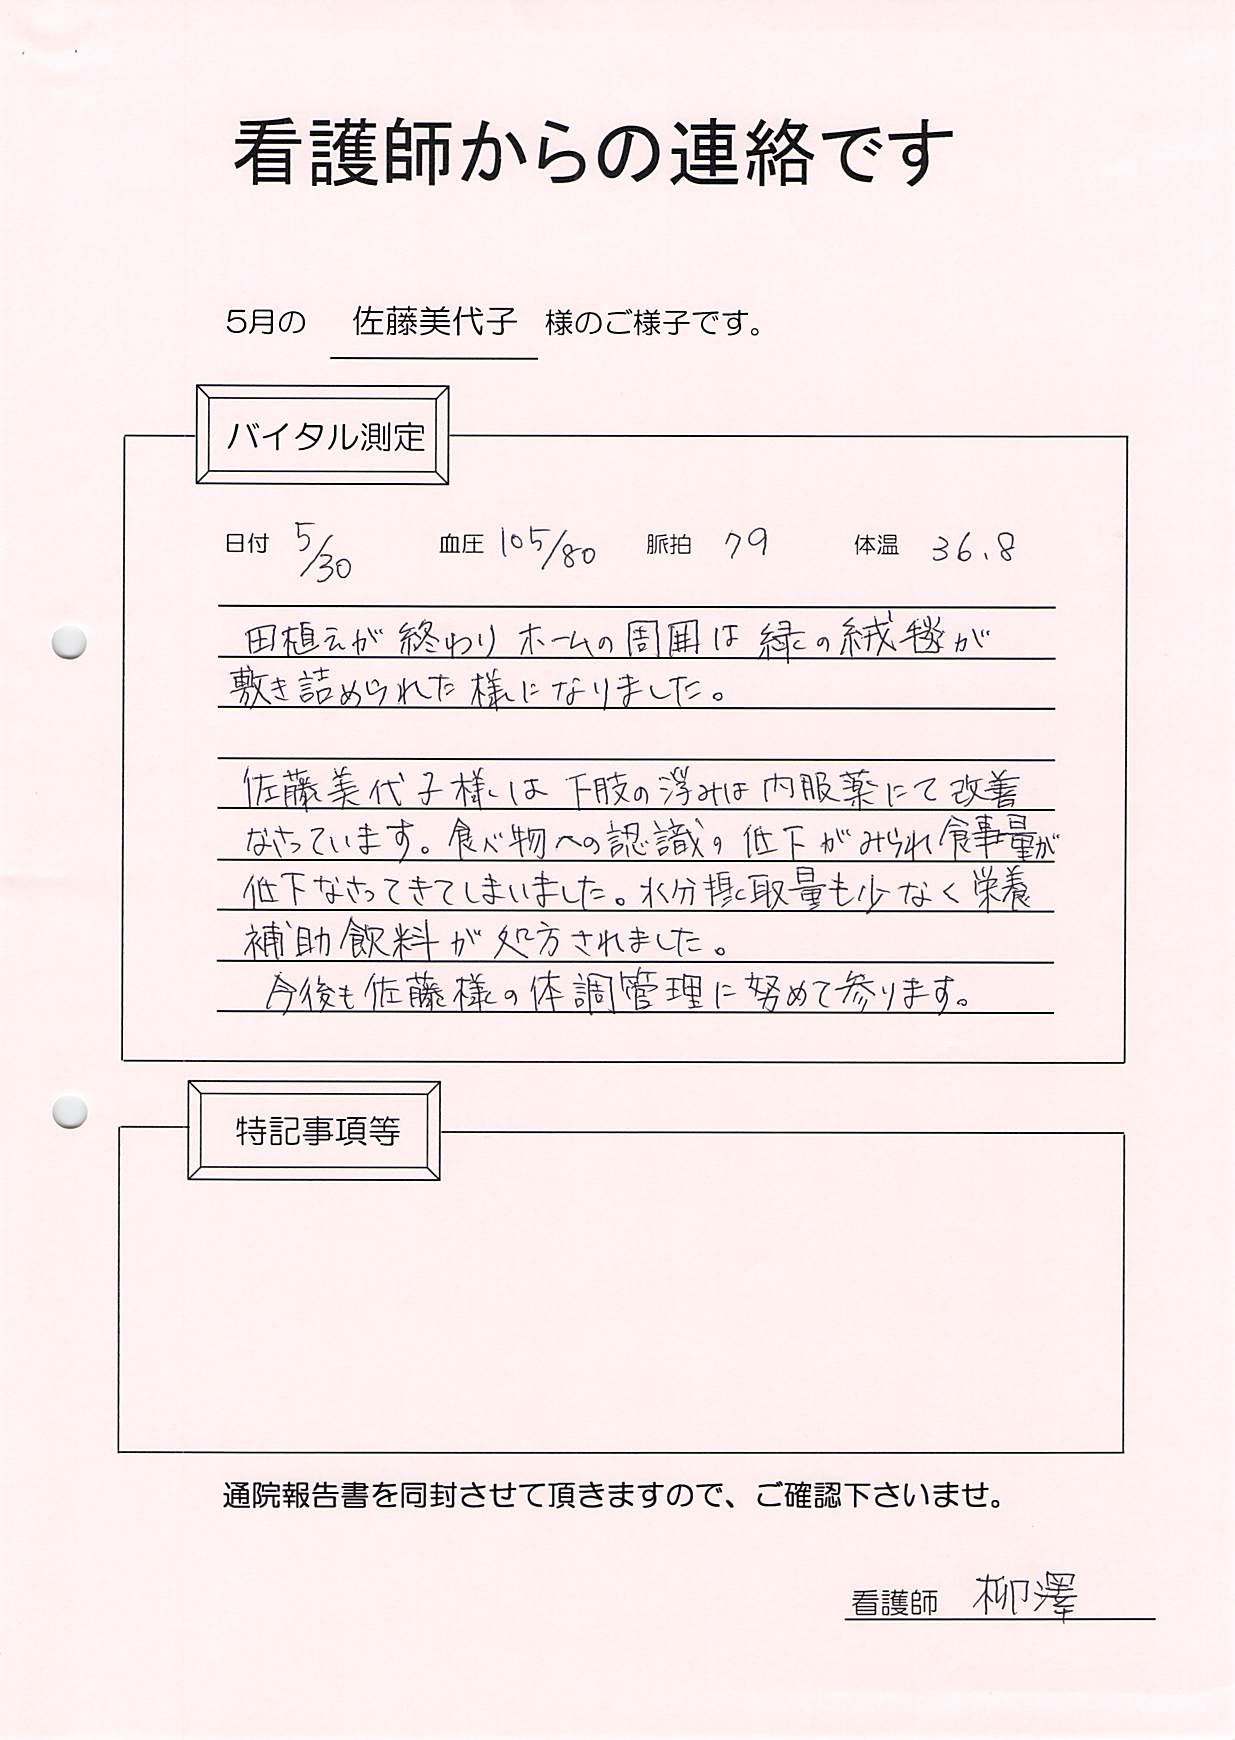 看護師からの連絡です
5月の 佐藤美代子 様のご様子です。
バイタル測定
日付 5/30 血圧 105/80 脈拍 79 体温 36.8
田植えが終わりホームの周囲は緑の絨毯が
敷き詰められた様になりました。
佐藤美代子様は下肢の浮みは内服薬にて改善
なさっています。食べ物への認識の低下がみられ食事量が
低下なさってきてしまいました。水分摂取量も少なく栄養
補助飲料が処方されました。
今後も佐藤様の体調管理に努めて参ります。
特記事項等
通院報告書を同封させて頂きますので、ご確認下さいませ。
看護師 柳澤